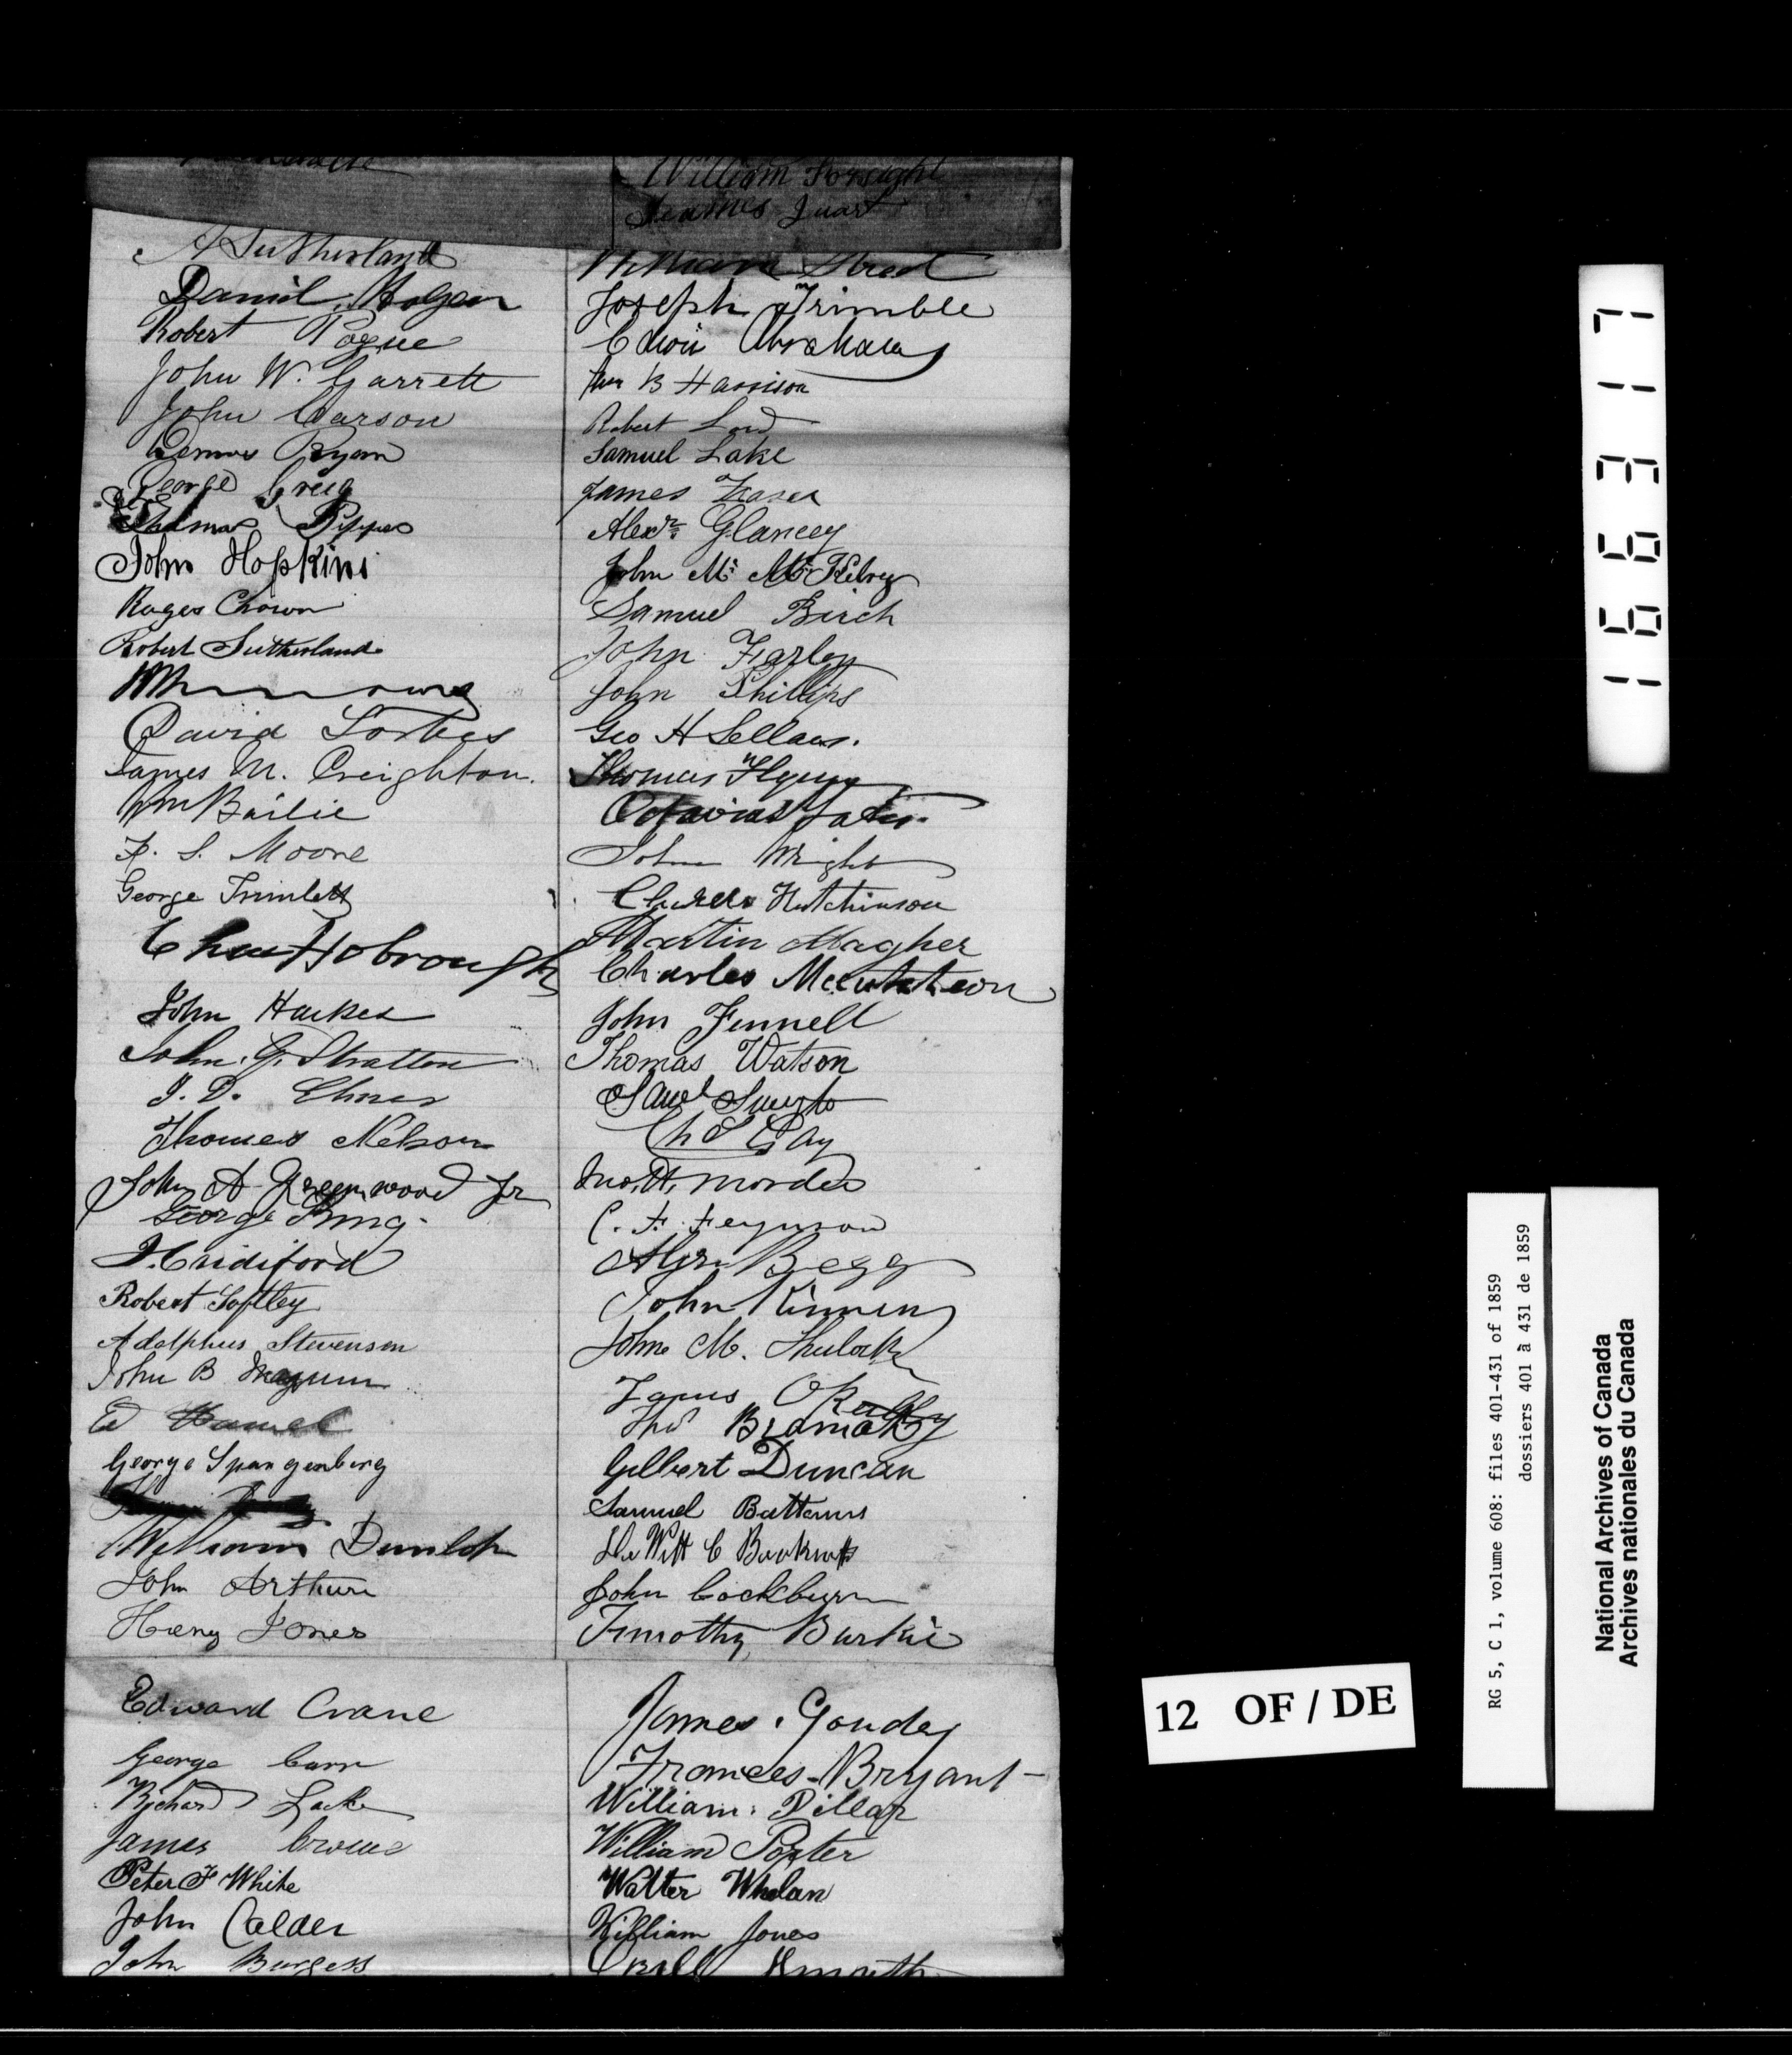 William Forsight
A Sutherland
Daniel Hogan
Robert Pogue
John W. Garrett
John Carson
Dennis Ryan
George Greig
Thomas Pepper
John Hopkins
Roger Chown
Robert Sutherland
David Forbes
James M. Creighton.
Wm Bailie
F. S. Moore
George Trimlett
John Hawkes
John G. Stratton
J. D.
Thomas Nelson
John A Greenwood Jr
George King
Robert Softley
Adolphus Stevenson
John B
Ed Hamel
George Spangenberg
William Dunlop
John Arthur
Henry Jones
Edward Crane
George Carr
Richard Lake
James Crowe
Peter F White
John Calder
John Burgess
William Street
Joseph Trimble
Edwin Abraham
B Harrison
Robert Lord
Samuel Lake
James Fraser
Alexr Glancey
John Mc McKelvey
Samuel Birch
John Farley
John Phillips
Geo H Sellars.
Thomas Flynn
Octavius Yates.
John Wright
Charles Hutchinson
Martin Magher
Charles Mccutcheon
John Fennell
Thomas Watson
Saml
Chs Gay
Jno. H. Morden
C. F. Ferguson
Alexr Begg
John Kinnen
John M. Shulock
James O Reilly
Ths
Gilbert Duncan
Samuel Battams
De Witt C
John Cockburn
Timothy Burke
James Goudey
Frances Bryant
William Dillap
William Porter
Walter Whelan
William Jones
166317
12 OF / DE
RG 5, C 1, volume 608: files 401-431 of 1859
dossiers 401 à 431 de 1859
National Archives of Canada
Archives nationales du Canada